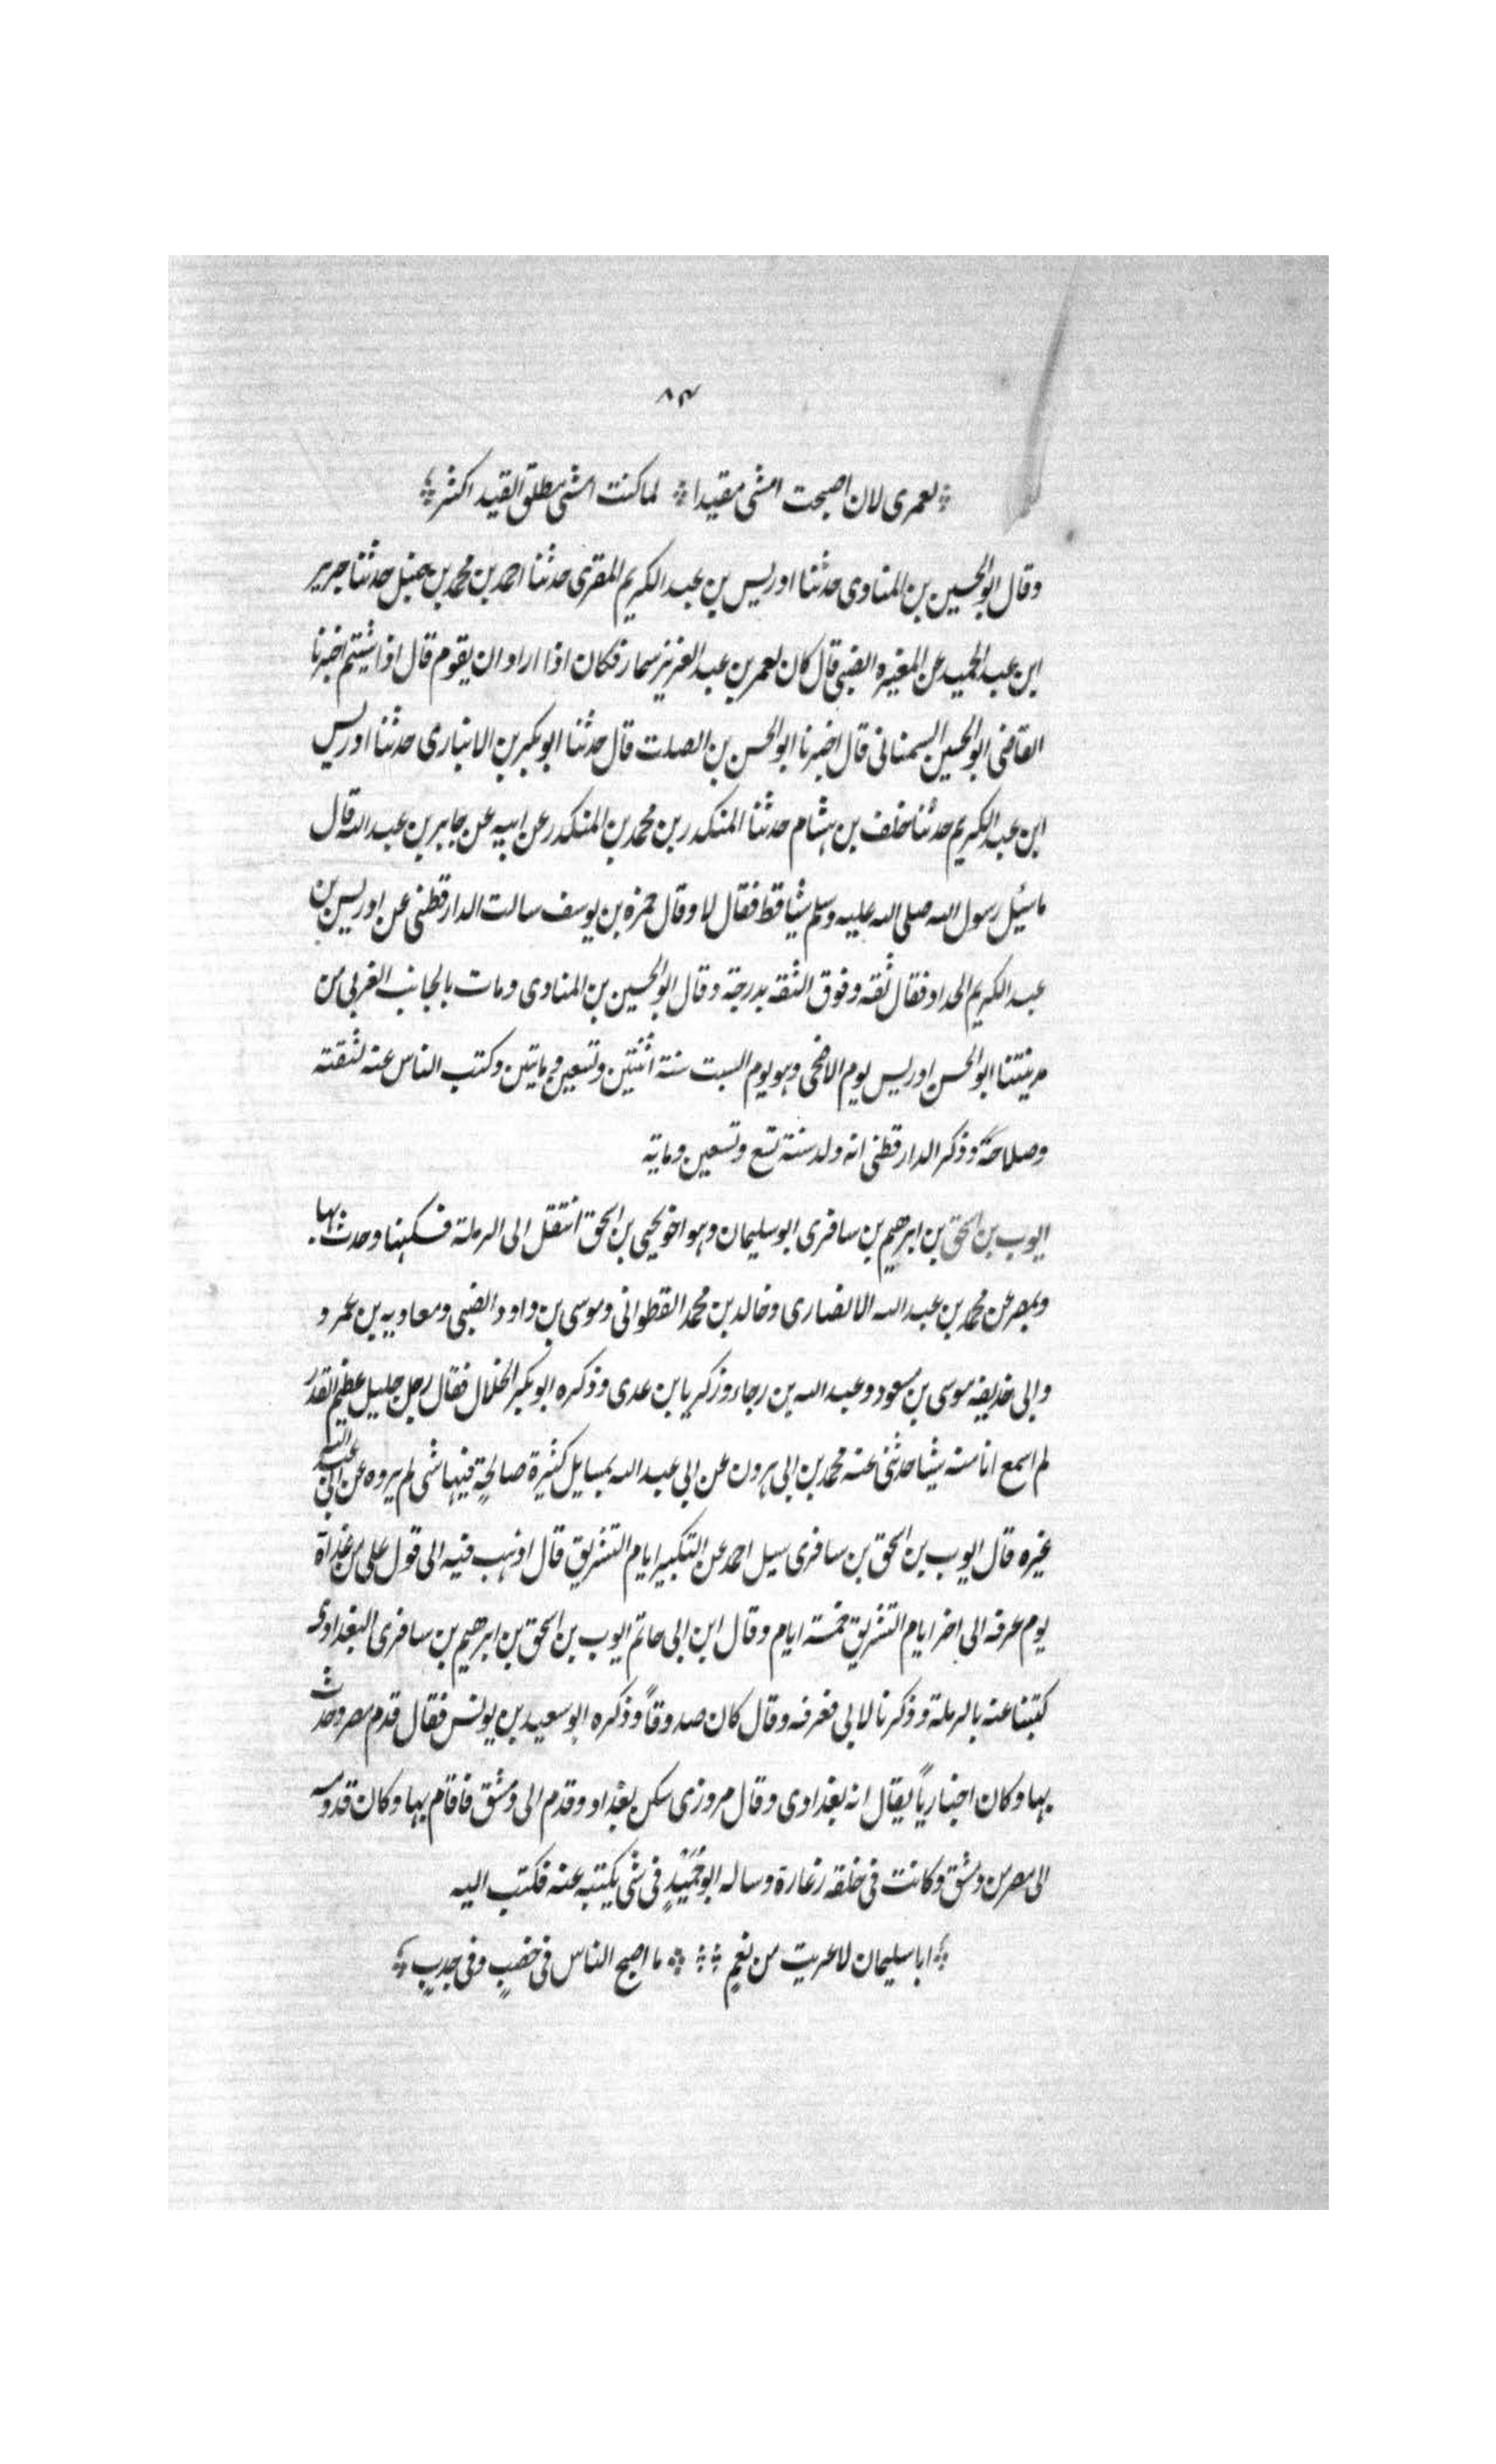 ٨٣
لعمرى لان اصبحت امشى مقيدا لما كنت امشى مطلق القيد اكثر
وقال ابو الحسين بن المناوى حدثنا ادريس بن عبد الكريم المقرى حدثنا احمد بن محمد بن حنبل حدثنا جرير
ابن عبد الحميد عن المغيره الضبى قال كان لعمر بن عبد العزيز سمار فكان اذا اراد ان يقوم قال اذا شيتم اخبرنا
القاضى ابو الحسين السمنانى قال اخبرنا ابو الحسن بن الصلت قال حدثنا ابو بكر بن الانبارى حدثنا ادريس
ابن عبد الكريم حدثنا خلف بن هشام حدثنا المنكدر بن محمد بن المنكدر عن ابيه عن جابر بن عبد الله قال
ماسئل رسول الله صلى الله عليه وسلم شيا قط فقال لا وقال حمزه بن يوسف سالت الدارقطنى عن ادريس بن
عبد الكريم الحداد فقال ثقه وفوق الثقه بدرجة وقال ابو الحسين بن المناوى ومات بالجانب الغربى من
مدينتنا ابو الحسن ادريس يوم الاضحى وهو يوم السبت سنة اثنتين وتسعين ومايتين وكتب الناس عنه لثقته
وصلاحه وذكر الدارقطنى انه ولد سنة تسع وتسعين وماية
ايوب بن اسحق بن ابرهيم بن سافرى ابو سليمان وهو اخو يحيى بن اسحق انتقل الى الرملة فسكنها وحدث بها
وبمصر عن محمد بن عبد الله الانصارى وخالد بن محمد القطوانى وموسى بن داود الضبى ومعاويه بن عمرو
وابى حذيفه موسى بن مسعود وعبد الله بن رجاء وزكريا بن عدى وذكره ابو بكر الخلال فقال رجل جليل عظيم القدر
لم اسمع انا منه شيا حدثنى عنه محمد بن ابى هرون عن ابى عبد الله بمسايل كثيرة صالحةٍ فيها شى لم يروه عن ابى عبد الله
غيره قال ايوب بن اسحق بن سافرى سيل احمد عن التكبير ايام التشريق قال اذهب فيه الى قول على من غداة
يوم عرفه الى اخر ايام التشريق خمسة ايام وقال ابن ابى حاتم ايوب بن اسحق بن ابرهيم بن سافرى البغدادى
كتبنا عنه بالرملة وذكرنا لابى فعرفه وقال كان صدوقاً وذكره ابو سعيد بن يونس فقال قدم مصر وحدث
بها وكان اخبارياً يقال انه بغدادى وقال مروزى سكن بغداد وقدم الى دمشق فاقام بها وكان قدومه
الى مصر من دمشق وكانت فى خلقه زعارة وساله ابو حُمَيْدٍ فى شى يكتبه عنه فكتب اليه
ابا سليمان لا عريت من نعمٍ ما اصبح الناس فى خصبٍ وفى جدبٍ